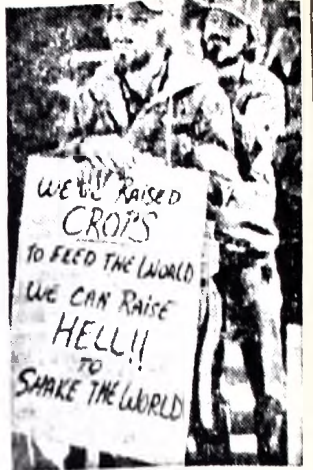 WE'VE RAISED
CROPS
TO FEED THE WORLD
WE CAN RAISE
HELL!!
TO
SHAKE THE WORLD